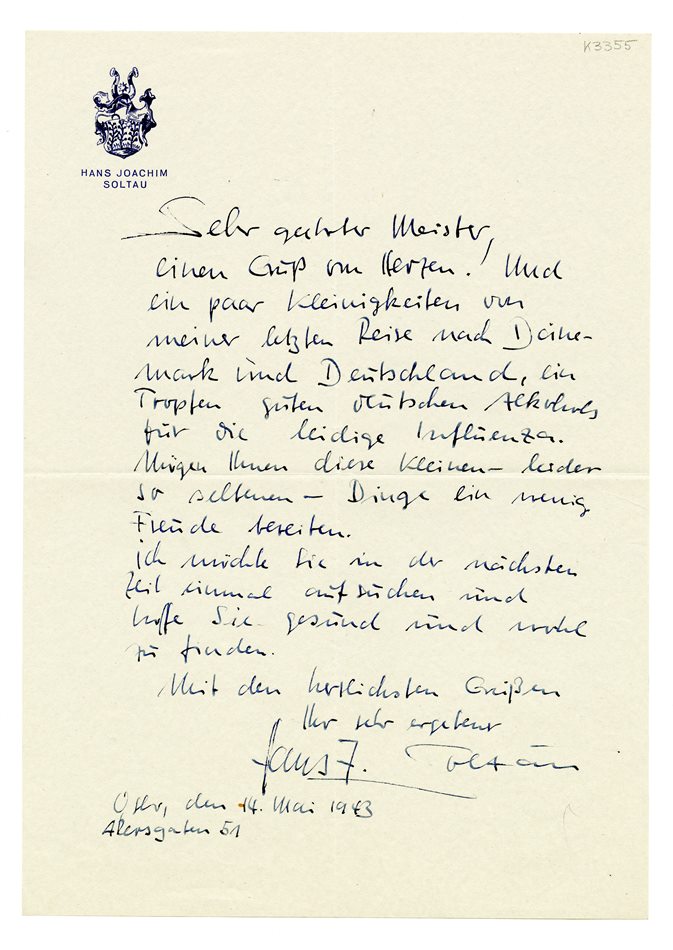 K3355
HANS JOACHIM
SOLTAU
Sehr geehrter Meister,
einen Gruß von Herzen! Und
ein paar Kleinigkeiten von
meiner letzten Reise nach Däne-
mark und Deutschland, ein
Tropfen guten deutschen Alkohols
für die leidige Influenza.
Mögen Ihnen diese kleinen – leider
so seltenen – Dinge ein wenig
Freude bereiten.
Ich möchte Sie in der nächsten
Zeit einmal aufsuchen und
hoffe Sie gesund und wohl
zu finden.
Mit den herzlichsten Grüßen
Ihr sehr ergebener
Hans J. Soltau
Oslo, den 14. Mai 1943
Akersgaten 51